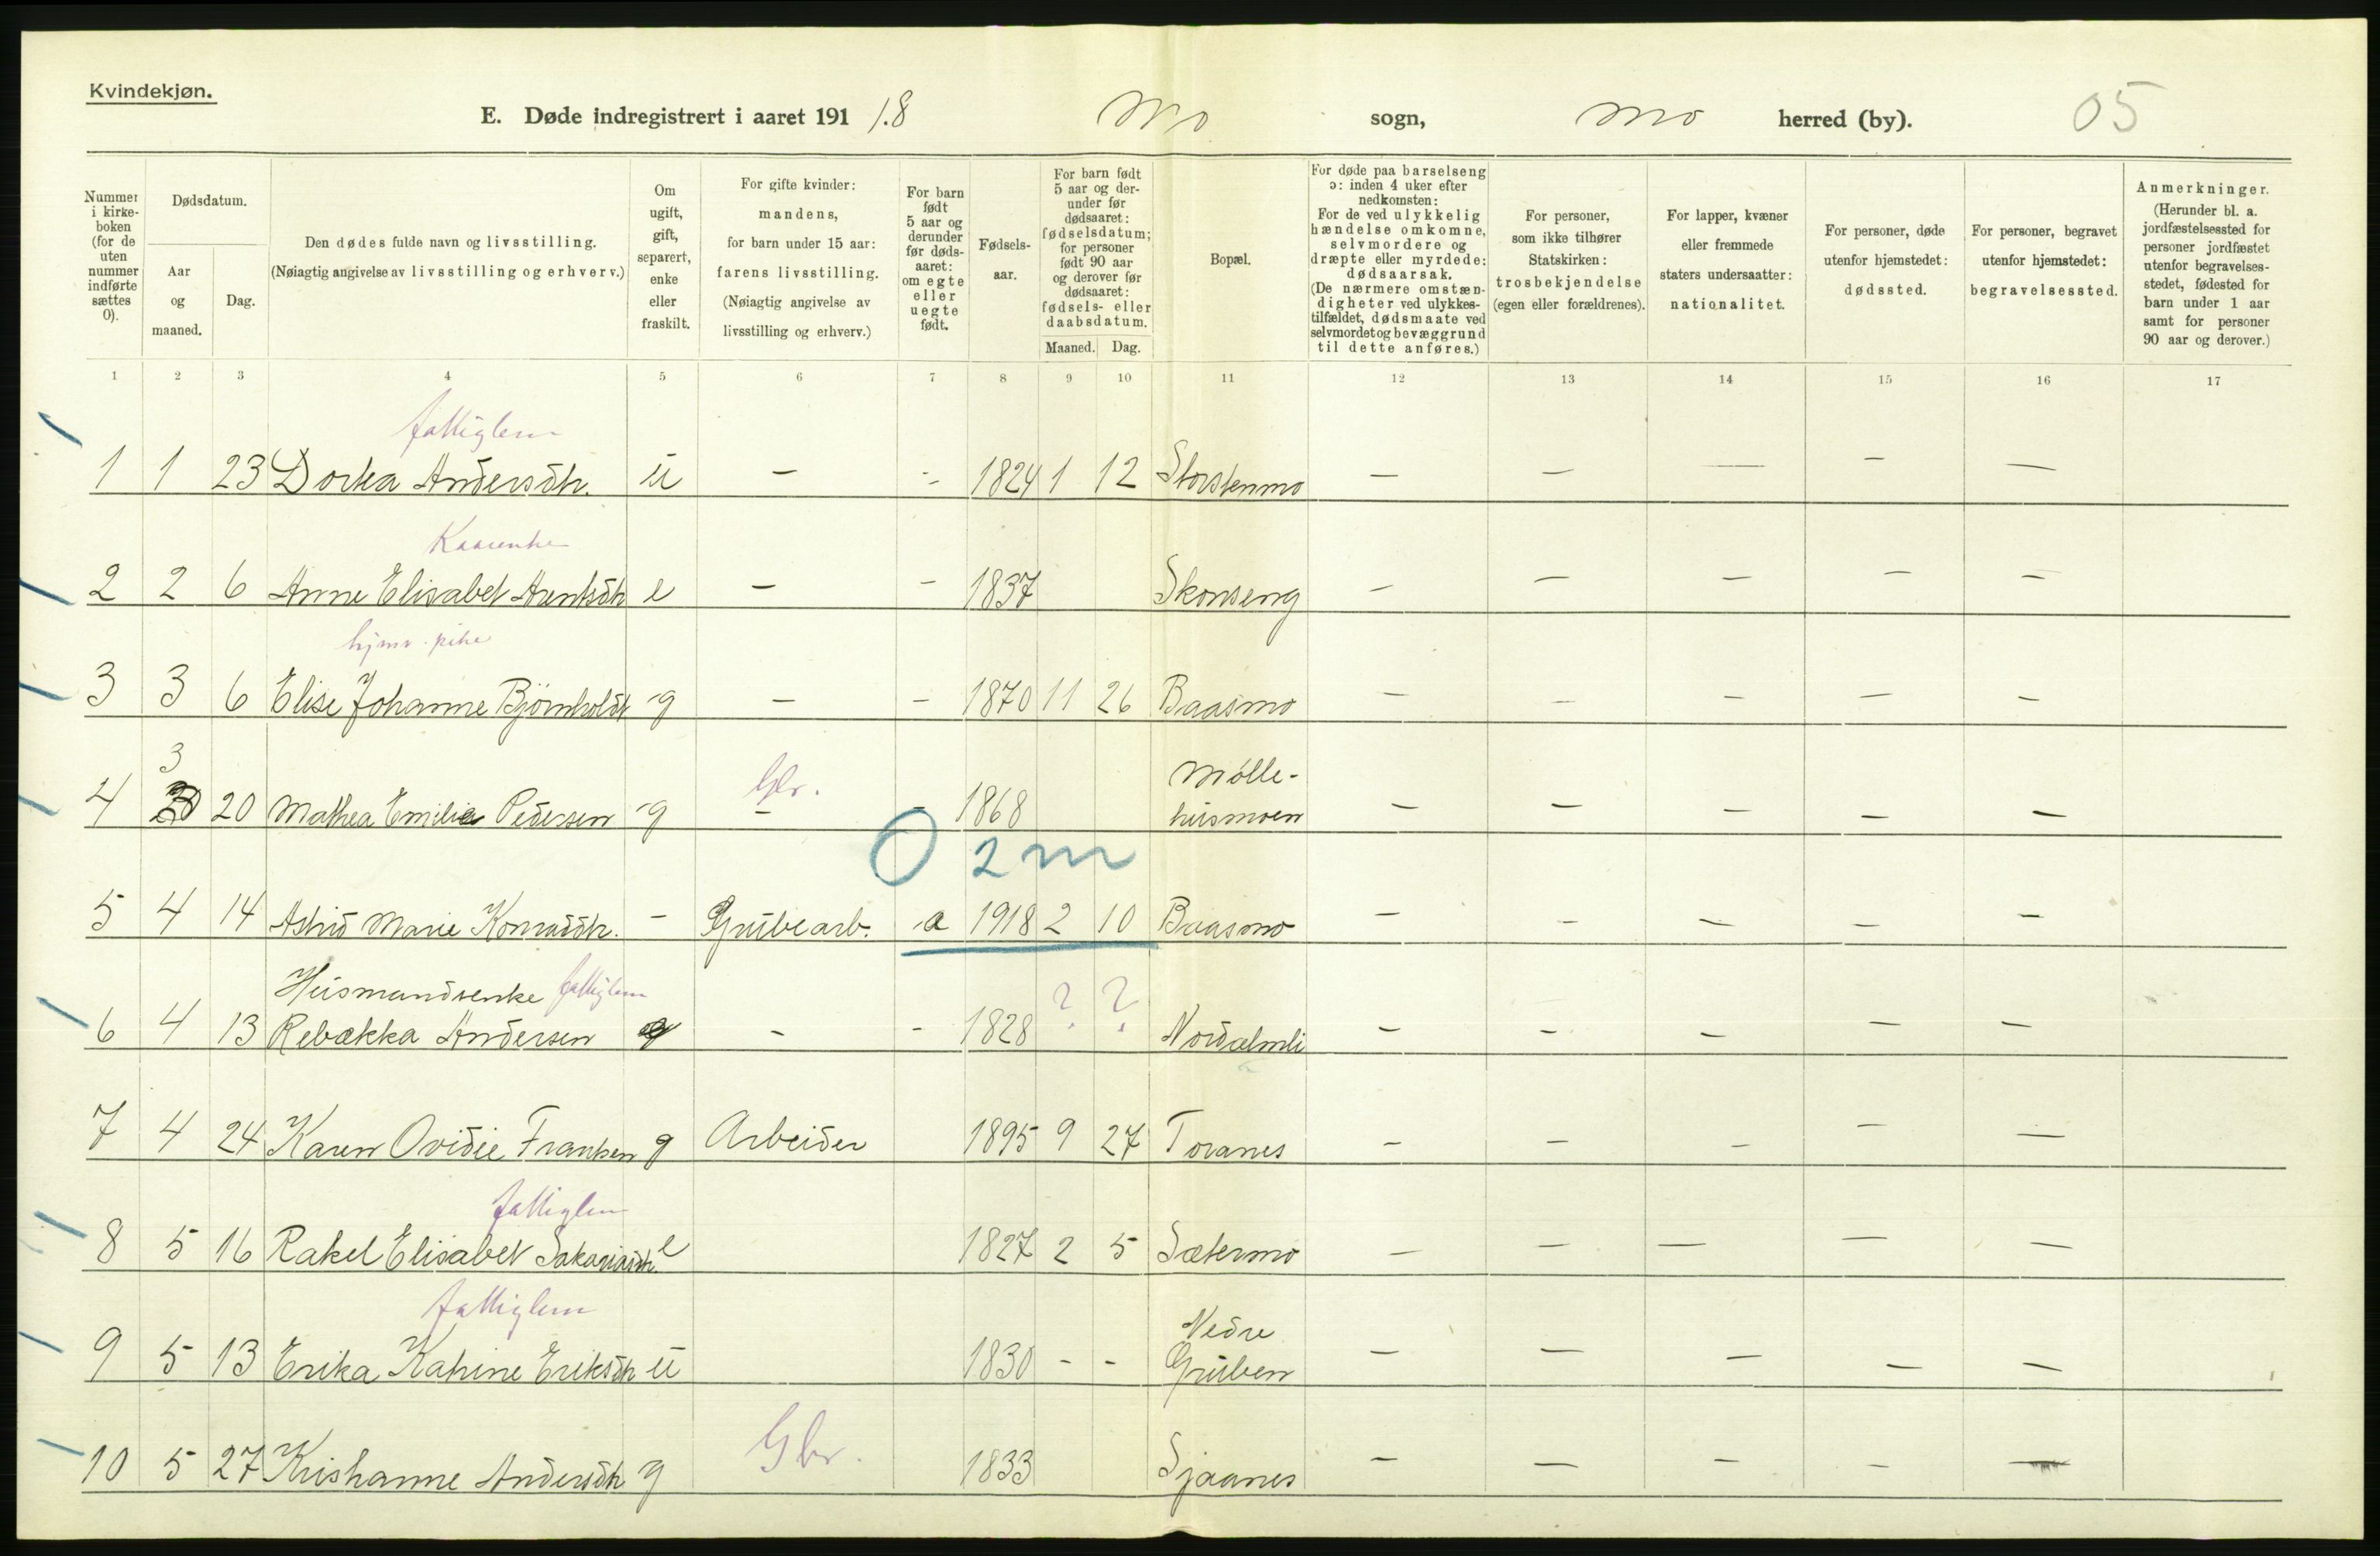 Kvindekjøn.
E. Døde indregistrert i aaret 1918 Mo sogn, Mo herred (by). 05
Nummer i kirke-boken (for de uten nummer indførte sættes 0).
Dødsdatum.
Aar og maaned.
Dag.
Den dødes fulde navn og livsstilling.
(Nøiagtig angivelse av livsstilling og erhverv.)
Om ugift, gift, separert, enke eller fraskilt.
For gifte kvinder: mandens, for barn under 15 aar: farens livsstilling. (Nøiagtig angivelse av livsstilling og erhverv.)
For barn født 5 aar og derunder før døds-aaret: om egte eller uegte født.
Fødsels-aar.
For barn født 5 aar og der-under før dødsaaret: fødselsdatum; for personer født 90 aar og derover før dødsaaret: fødsels- eller daabsdatum.
Maaned. Dag.
Bopæl.
For døde paa barselseng ɔ: inden 4 uker efter nedkomsten: For de ved ulykkelig hændelse omkomne, selvmordere og dræpte eller myrdede: dødsaarsak. (De nærmere omstæn-digheter ved ulykkes-tilfældet, dødsmaate ved selvmordet og bevæggrund til dette anføres.)
For personer, som ikke tilhører Statskirken: trosbekjendelse (egen eller forældrenes).
For lapper, kvæner eller fremmede staters undersaatter: nationalitet.
For personer, døde utenfor hjemstedet: dødssted.
For personer, begravet utenfor hjemstedet: begravelsessted.
Anmerkninger. (Herunder bl. a. jordfæstelsessted for personer jordfæstet utenfor begravelses-stedet, fødested for barn under 1 aar samt for personer 90 aar og derover.)
1 2 3 4 5 6 7 8 9 10 11 12 13 14 15 16 17
fattiglem
1 1 23 Dorka Andersdtr. u - - 1824 1 12 Storstenmo - - - - -
Kaarenke
2 2 6 Anne Elisabet Arentsdtr e - - 1837 Skonseng - - - - -
hjmv. pike
3 3 6 Elise Johanne Bjørnholdt g - - 1870 11 26 Baasmo - - - - -
3 Gbr. Mølle-
4 20 Mathea Emilie Pedersen g - - 1868 husmoen - - - - -
0 2 m
5 4 14 Astrid Marie Konraddtr. - Grubearb. a 1918 2 10 Baasmo - - - - -
Husmandsenke fattiglem ? ?
6 4 13 Rebækka Andersen - - 1828 Nordalmli - - - - -
7 4 24 Karen Ovidie Frantsen g Arbeider 1895 9 27 Toranes - - - - -
fattiglem
8 5 16 Rakel Elisabet Sakariasdtr. e 1827 2 5 Sætermo - - - - -
fattiglem Nedre
9 5 13 Erika Katrine Eriksdtr u 1830 - - Gruben - - - - -
10 5 27 Kristianne Andersdtr g Gbr. 1833 Sjaanes - - - - -